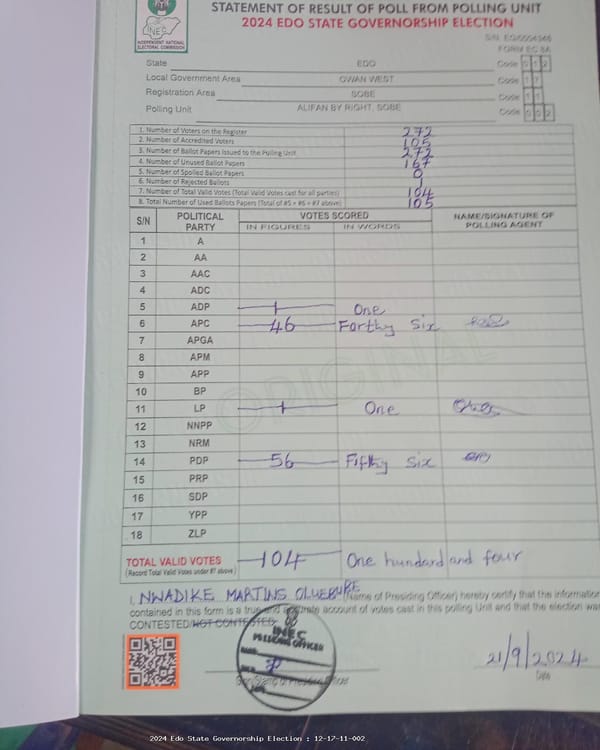 STATEMENT OF RESULT OF POLL FROM POLLING UNIT
2024 EDO STATE GOVERNORSHIP ELECTION
INEC
INDEPENDENT NATIONAL ELECTORAL COMMISSION
FORM EC 8A
State EDO Code 0 1 2
Local Government Area OWAN WEST Code 1 7
Registration Area SOBE Code 1 1
Polling Unit ALIFAN BY RIGHT, SOBE Code 0 0 2
1. Number of Voters on the Register 272
2. Number of Accredited Voters 105
3. Number of Ballot Papers Issued to the Polling Unit 272
4. Number of Unused Ballot Papers 167
5. Number of Spoiled Ballot Papers 0
6. Number of Rejected Ballots 1
7. Number of Total Valid Votes (Total Valid Votes cast for all parties) 104
8. Total Number of Used Ballots Papers (Total of #5 + #6 + #7 above) 105
S/N POLITICAL PARTY VOTES SCORED NAME/SIGNATURE OF POLLING AGENT
IN FIGURES IN WORDS
1 A
2 AA
3 AAC
4 ADC
5 ADP 1 One
6 APC 46 Forthy Six
7 APGA
8 APM
9 APP
10 BP
11 LP 1 One
12 NNPP
13 NRM
14 PDP 56 Fifthy Six
15 PRP
16 SDP
17 YPP
18 ZLP
ORIGINAL
TOTAL VALID VOTES 104 One hundred and four
(Record Total Valid Votes under #7 above)
I, NWADIKE MARTINS (Name of Presiding Officer) hereby certify that the information
contained in this form is a true and accurate account of votes cast in this polling Unit and that the election was
CONTESTED/NOT CONTESTED
INEC
PRESIDING OFFICER
21/9/2024
Date
2024 Edo State Governorship Election : 12-17-11-002